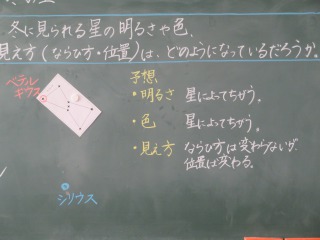 冬に見られる星の明るさや色、
見え方(ならび方・位置)は、どのようになっているだろうか。
ベテル
ギウス
予想
・明るさ 星によってちがう。
・色 星によってちがう。
・見え方 ならび方は変わらないが
位置は変わる。
シリウス